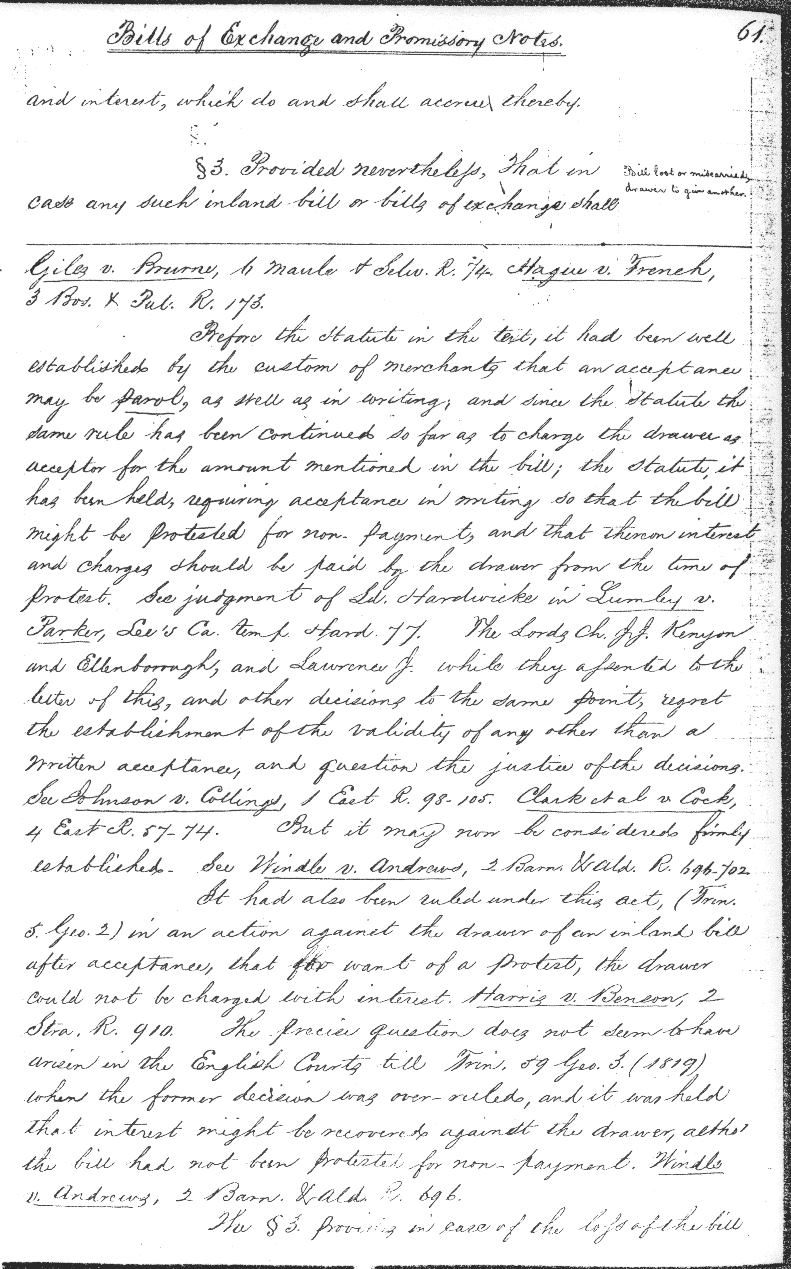 Bills of Exchange and Promissory Notes.
61.
and interest, which do and shall accrue thereby.
§3. Provided nevertheless, That in
case any such inland bill or bills of exchange shall
Bill lost or miscarried,
drawer to give another.
Giles v. Bourne, 6 Maule & Selw. R. 74. Hague v. French,
3 Bos. & Pul. R. 173.
Before the Statute in the text, it had been well
established by the custom of merchants that an acceptance
may be parol, as well as in writing; and since the Statute the
same rule has been continued so far as to charge the drawer as
acceptor for the amount mentioned in the bill; the statute, it
has been held, requiring acceptance in writing so that the bill
might be protested for non-payment, and that thereon interest
and charges should be paid by the drawer from the time of
protest. See judgment of Ld. Hardwicke in Lumley v.
Parker, Lee's Ca. temp. Hard. 77. The Lords Ch. JJ. Kenyon
and Ellenborough, and Lawrence J. while they assented to the
letter of this, and other decisions to the same point, regret
the establishment of the validity of any other than a
written acceptance, and question the justice of the decisions.
See Johnson v. Collings, 1 East R. 98-105. Clark et al v Cock,
4 East R. 57-74. But it may now be considered firmly
established. See Windle v. Andrews, 2 Barn. & Ald. R. 696-702
It had also been ruled under this act, (Trin.
5. Geo. 2) in an action against the drawer of an inland bill
after acceptance, that for want of a protest, the drawer
could not be charged with interest. Harris v. Benson, 2
Stra. R. 910. The precise question does not seem to have
arisen in the English Courts till Trin. 59 Geo. 3. (1819)
when the former decision was over-ruled, and it was held
that interest might be recovered against the drawer, altho'
the bill had not been protested for non-payment. Windle
v. Andrews, 2 Barn. & Ald. R. 696.
The §3. provides in case of the loss of the bill